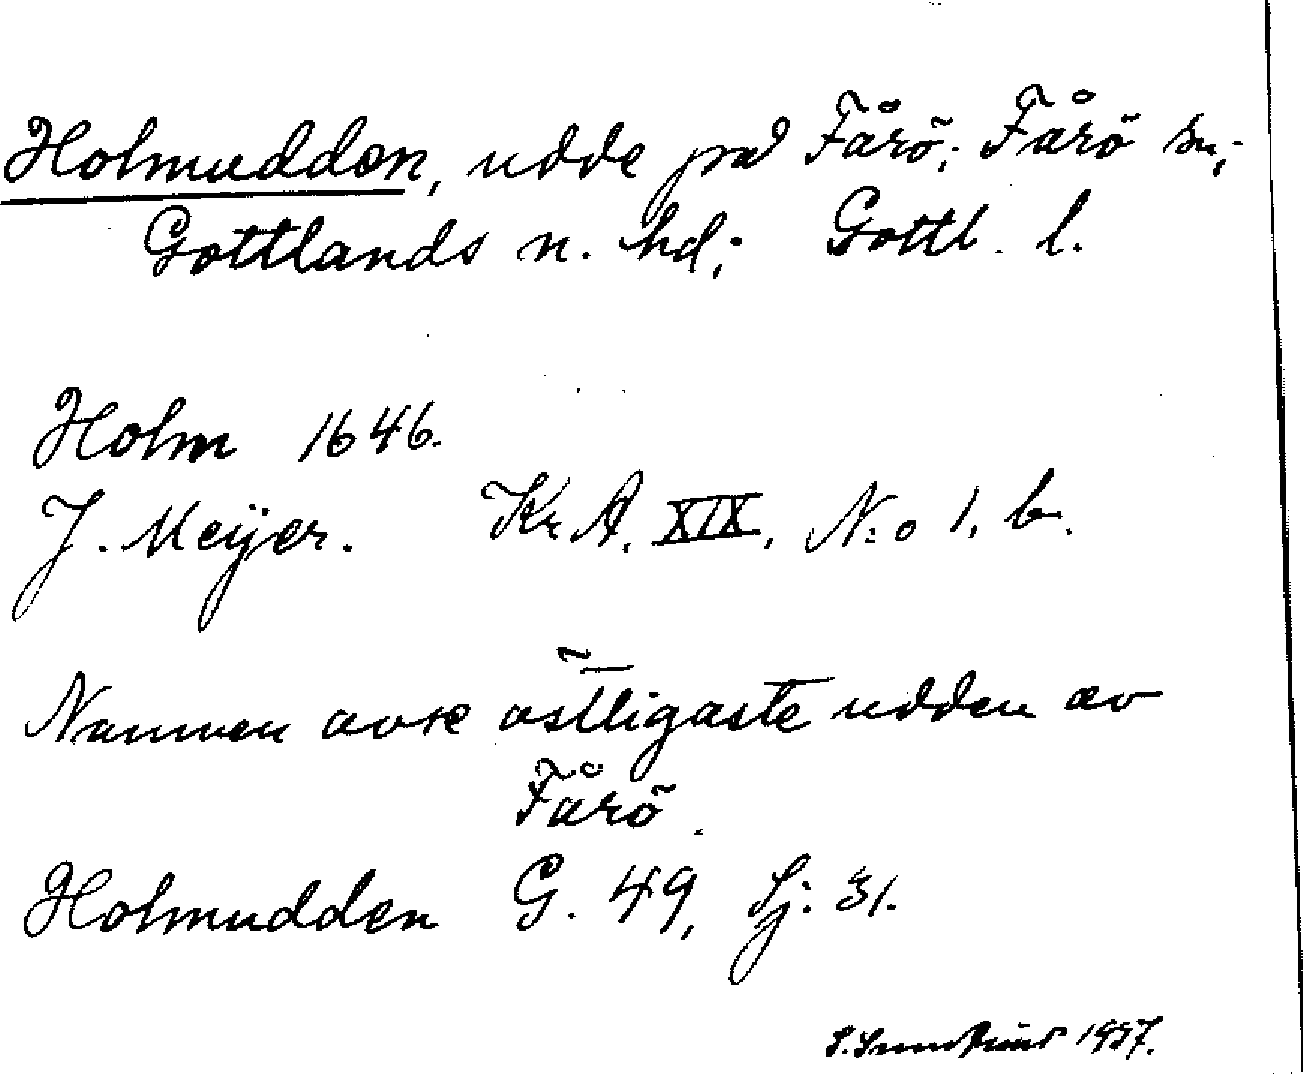 Holmudden, udde på Fårö; Fårö sn,
Gottlands n. hd; Gottl. l.
Holm 1646.
J. Meijer. Kr A. XIX, N:o 1, b.
Namnen avse östligaste udden av
Fårö.
Holmudden G. 49, Sj: 31.
1937.